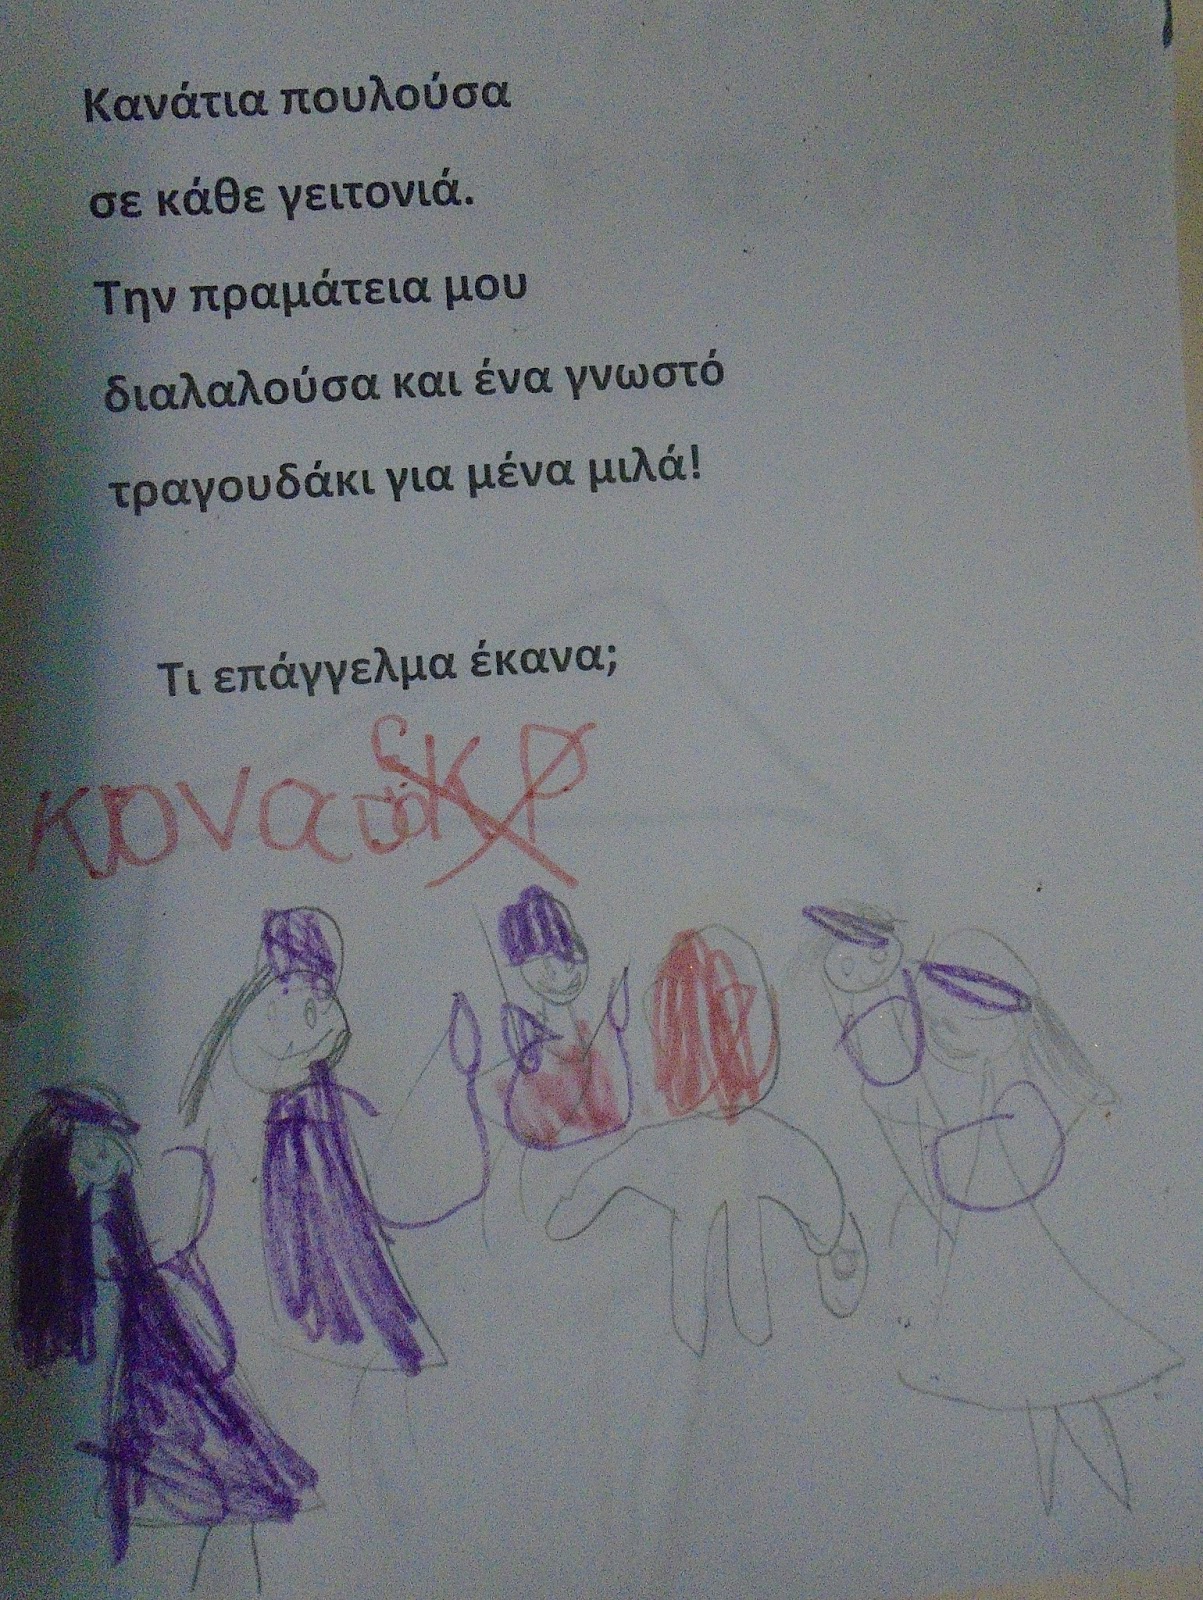 Κανάτια πουλούσα
σε κάθε γειτονιά.
Την πραμάτεια μου
διαλαλούσα και ένα γνωστό
τραγουδάκι για μένα μιλά!
Τι επάγγελμα έκανα;